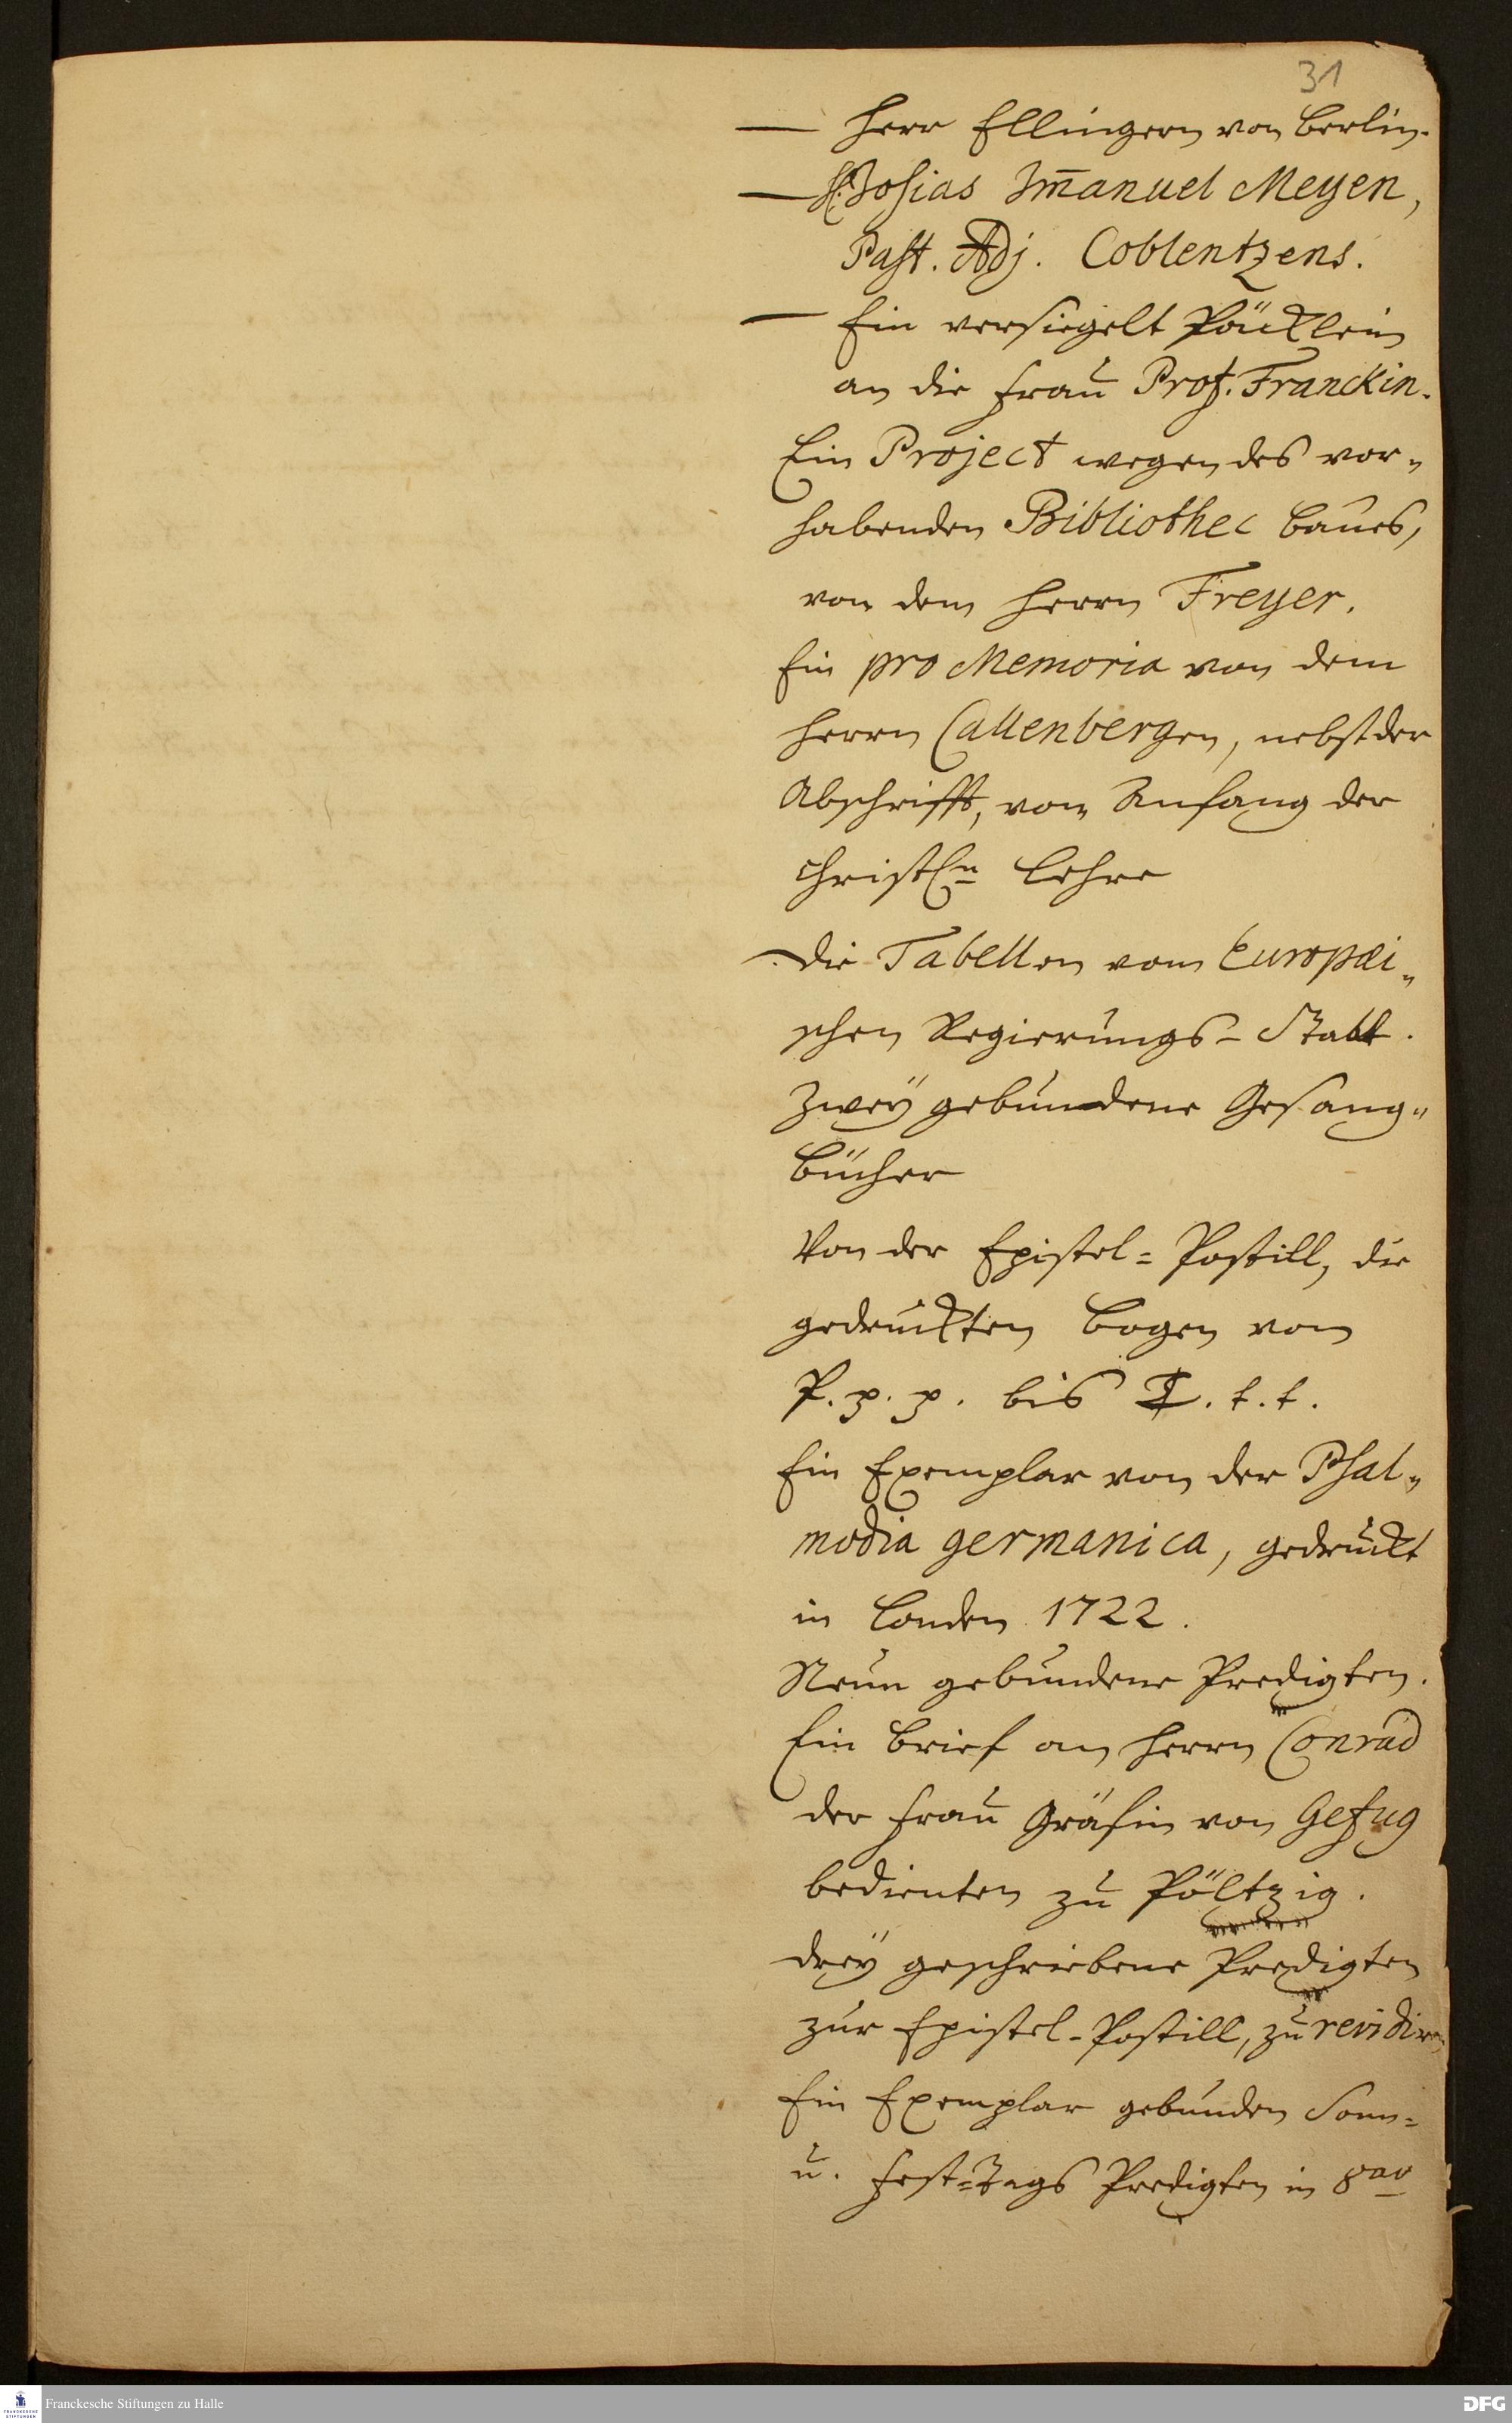 31
— Herr Ellingern von Berlin.
— H. Josias Im̅anuel Meyen,
Past. Adj. Coblentzens.
— Ein versiegelt Päcklein
an die Frau Prof. Franckin.
Ein Project wegen des vor„
habenden Bibliothec Baues,
von dem Herrn Freyer.
Ein pro Memoria von dem
Herrn Callenbergen, nebst der
Abschrifft, vom Anfang der
christln Lehre
— Die Tabellen vom Europæi„
schen Regierungs-Stabt.
Zwey gebundene Gesang„
Bücher
Von der Epistel-Postill, die
gedruckten Bogen von
P. p. p. bis T. t. t.
Ein Exemplar von der Psal„
modia germanica, gedruckt
in Londen 1722.
Neun gebundene Predigten.
Ein Brief an Herrn Conrad
der Frau Gräfin von Gefug
bedienten zu Pöltzig.
Drey geschriebene Predigten
zur Epistel-Postill, zu revidiren
Ein Exemplar gebunden Sonn-
u. Fest-Tags Predigten in 8avo
Franckesche Stiftungen zu Halle
DFG